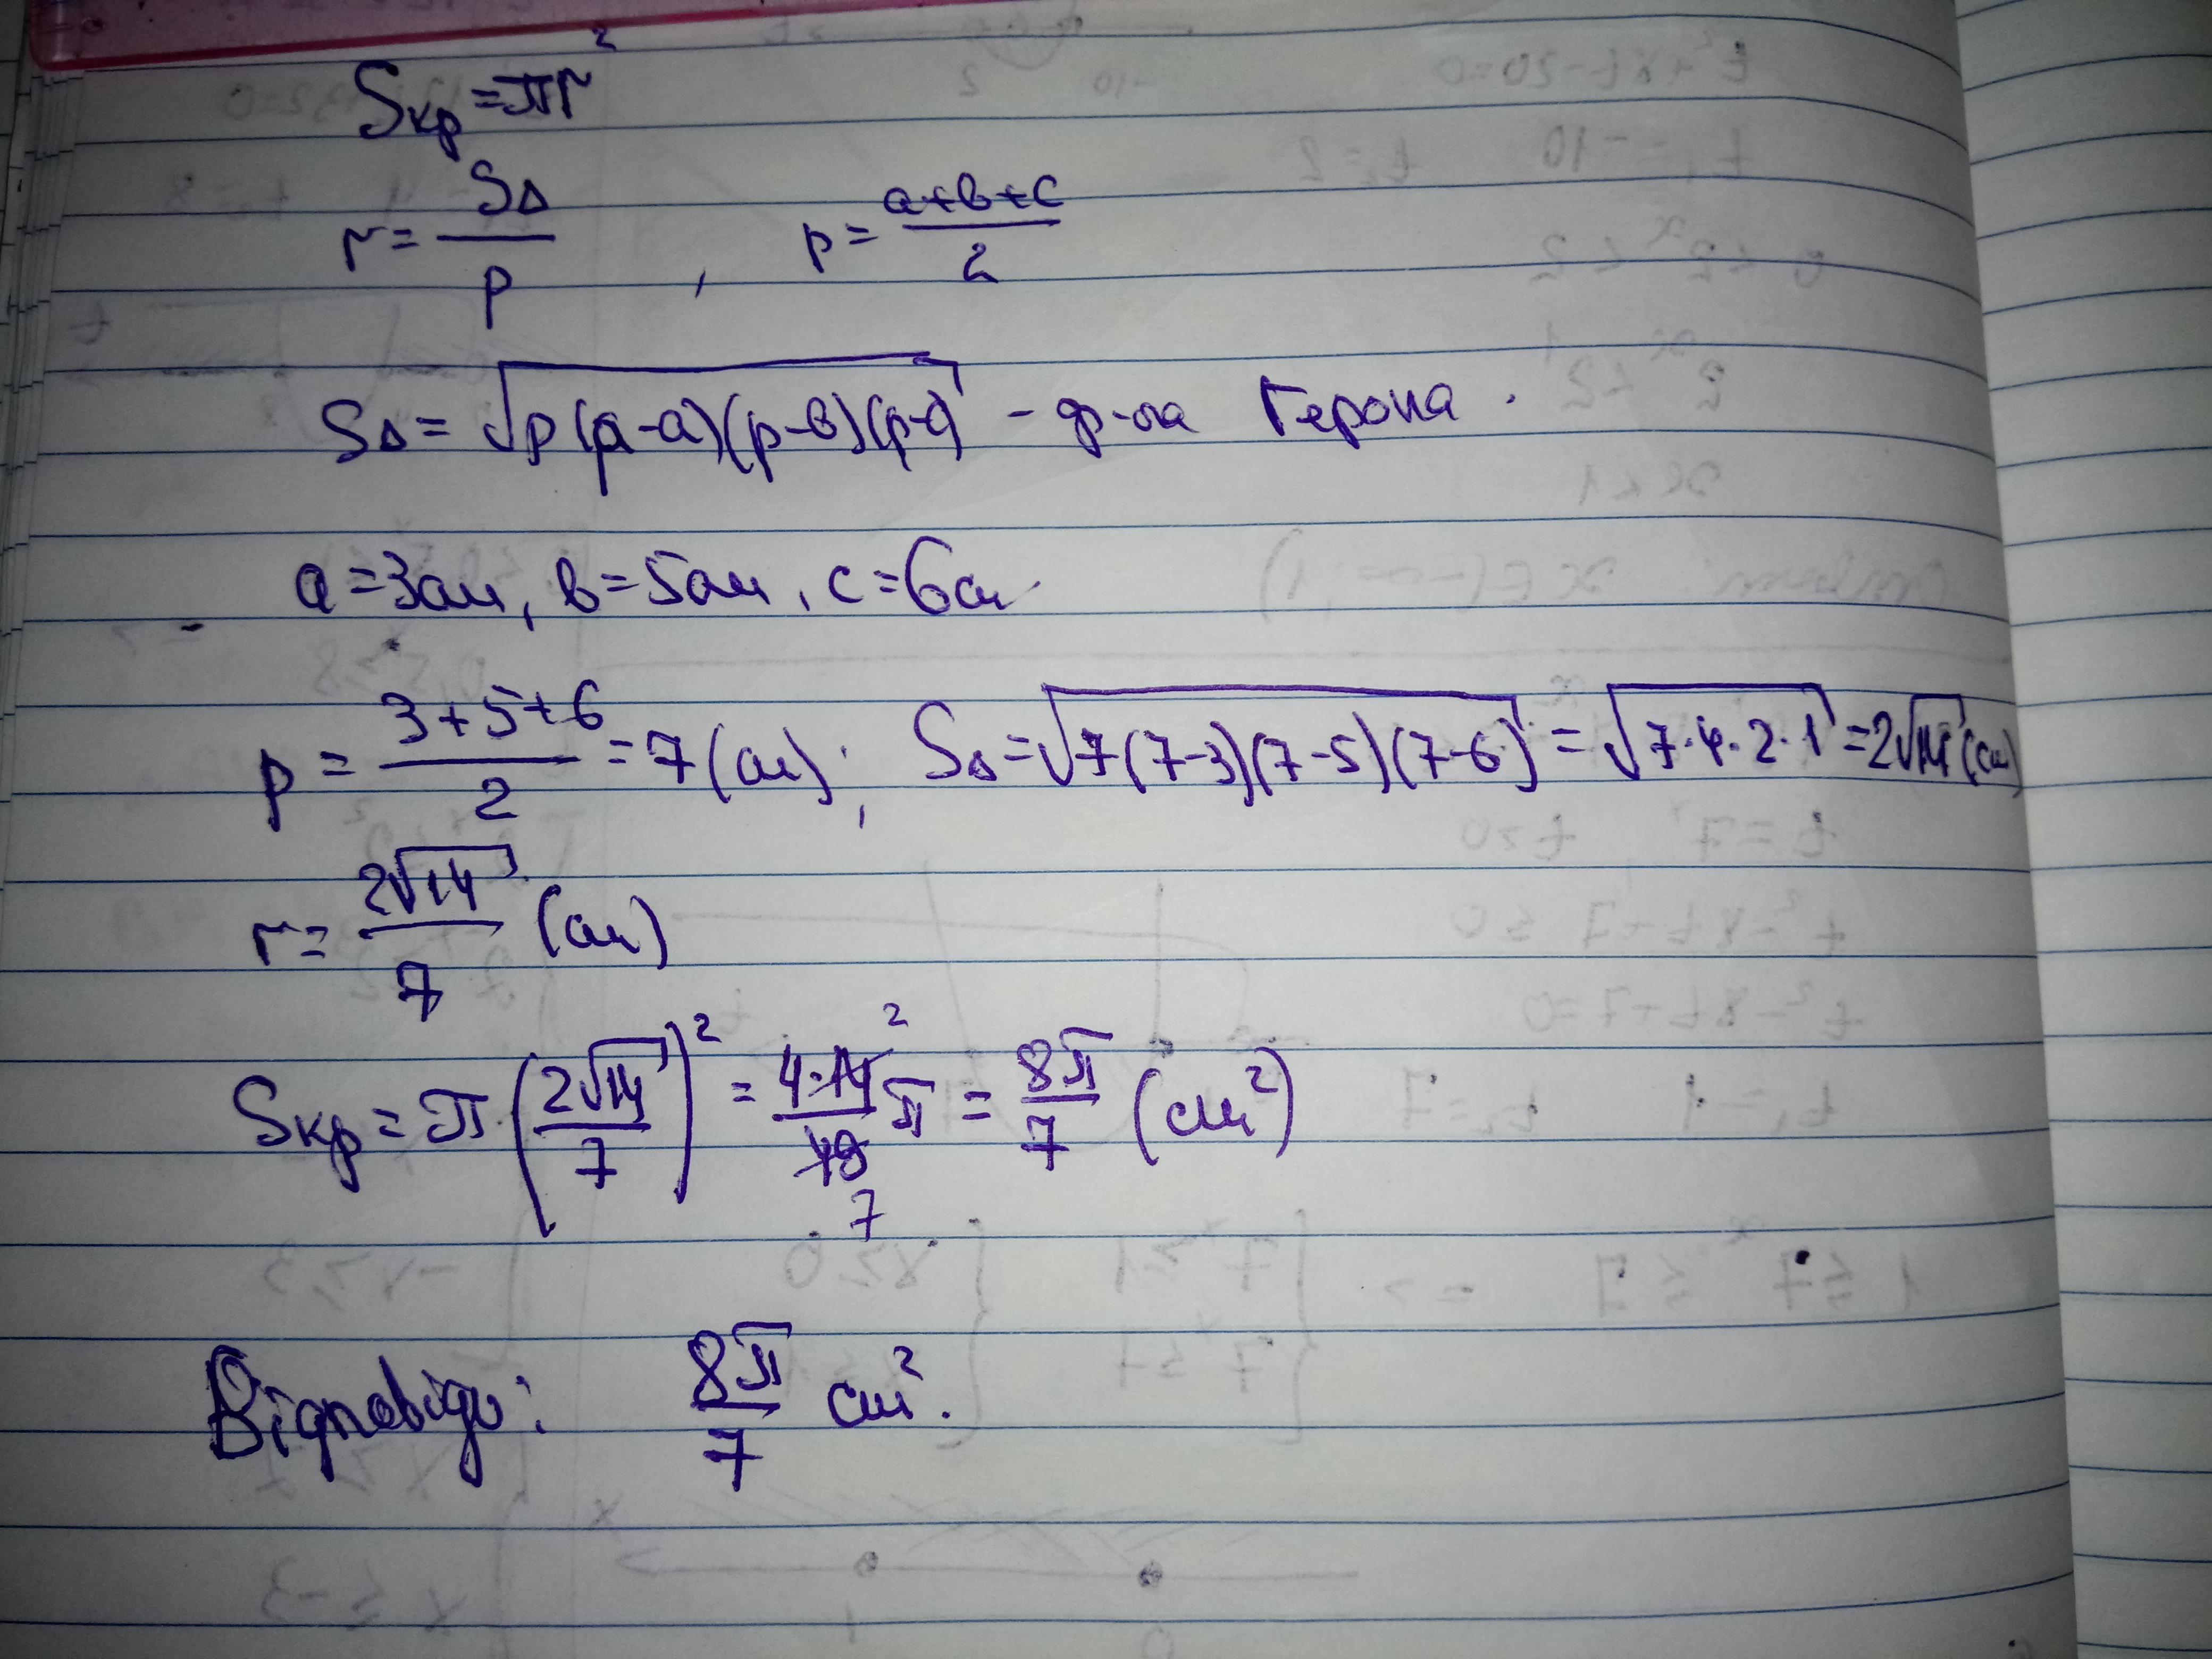 Sкр = πr²
r = S△/p , p = (a+b+c)/2
S△ = √(p(p-a)(p-b)(p-c)) - ф-ла Герона.
a = 3см, b = 5см, c = 6см
p = (3+5+6)/2 = 7 (см); S△ = √(7(7-3)(7-5)(7-6)) = √(7·4·2·1) = 2√14 (см)
r = 2√14/7 (см)
Sкр = π(2√14/7)² = 4·14/49 π = 8π/7 (см²)
2
7
Відповідь: 8π/7 см².